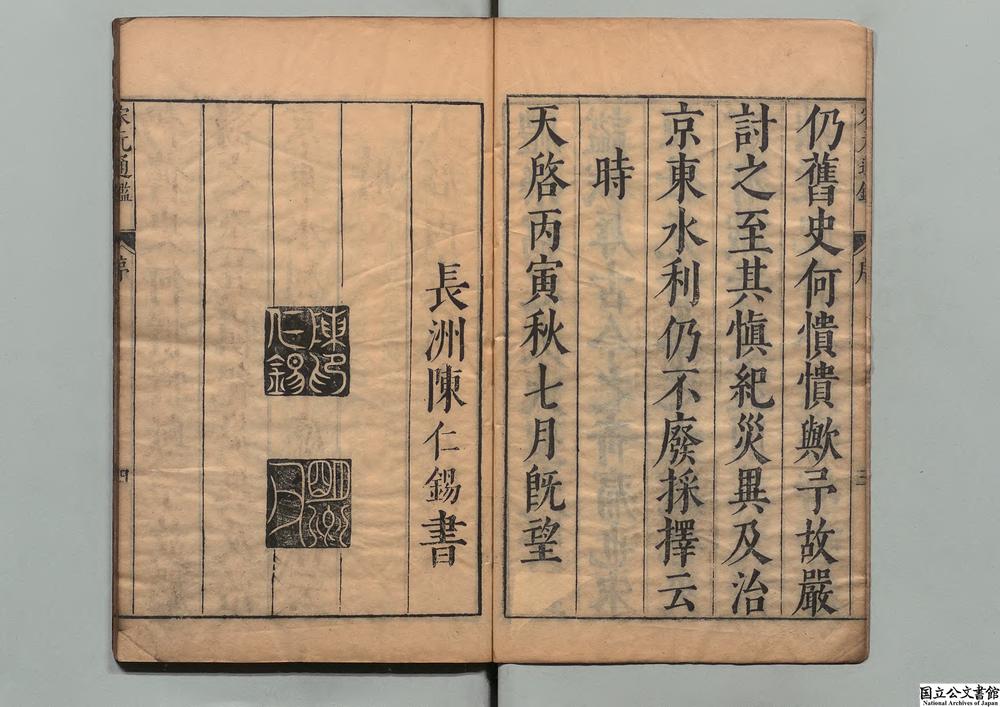 仍舊史何憒憒歟予故嚴
討之至其慎紀災異及治
京東水利仍不廢採擇云
時
天啓丙寅秋七月既望
長洲陳仁錫書
陳印
仁錫
明卿
父
宋元通鑑
序
四
序
三
国立公文書館
National Archives of Japan